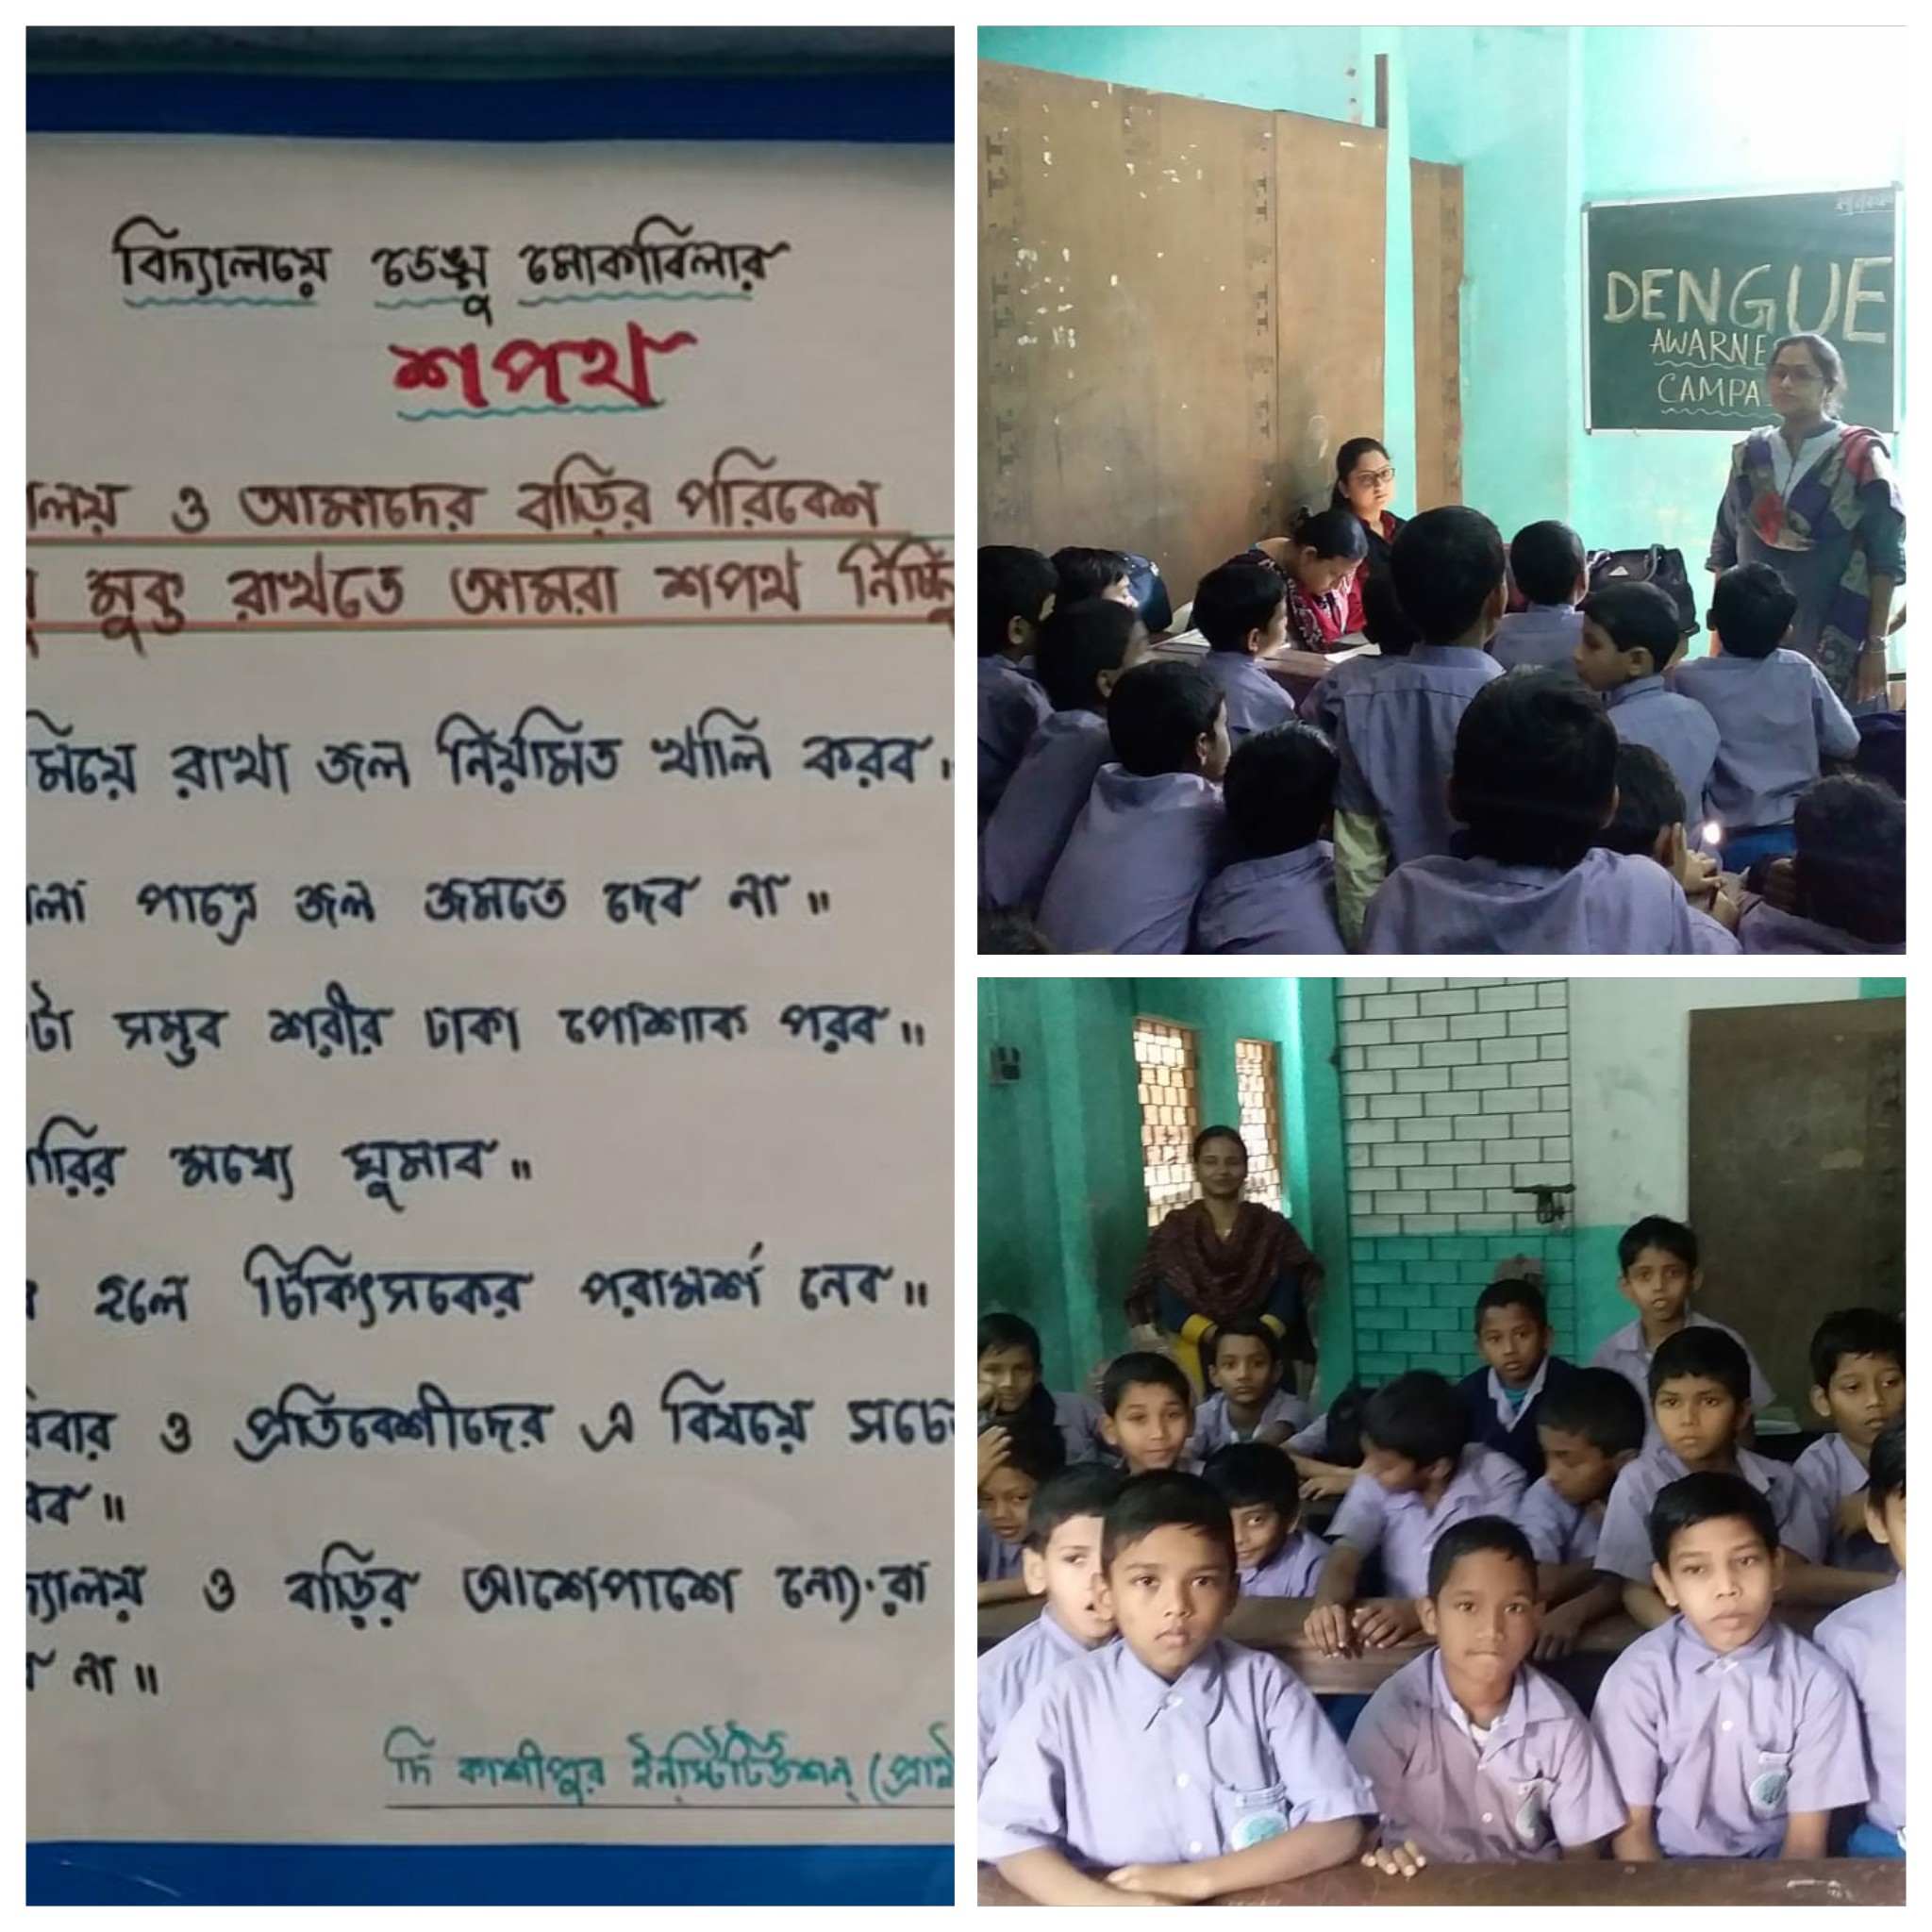 বিদ্যালয়ে ডেঙ্গু মোকাবিলার
শপথ
লয় ও আমাদের বাড়ির পরিবেশ
মুক্ত রাখতে আমরা শপথ নিচ্ছি
মিয়ে রাখা জল নিয়মিত খালি করব।
লা পাত্রে জল জমতে দেব না॥
টা সম্ভব শরীর ঢাকা পোশাক পরব॥
ারির মধ্যে ঘুমাব॥
হলে চিকিৎসকের পরামর্শ নেব॥
রিবার ও প্রতিবেশীদের এ বিষয়ে সচে
রব॥
দ্যালয় ও বাড়ির আশেপাশে নোংরা
না॥
দি কাশীপুর ইনস্টিটিউশন্ (প্রাই
DENGUE
AWARNE
CAMPA